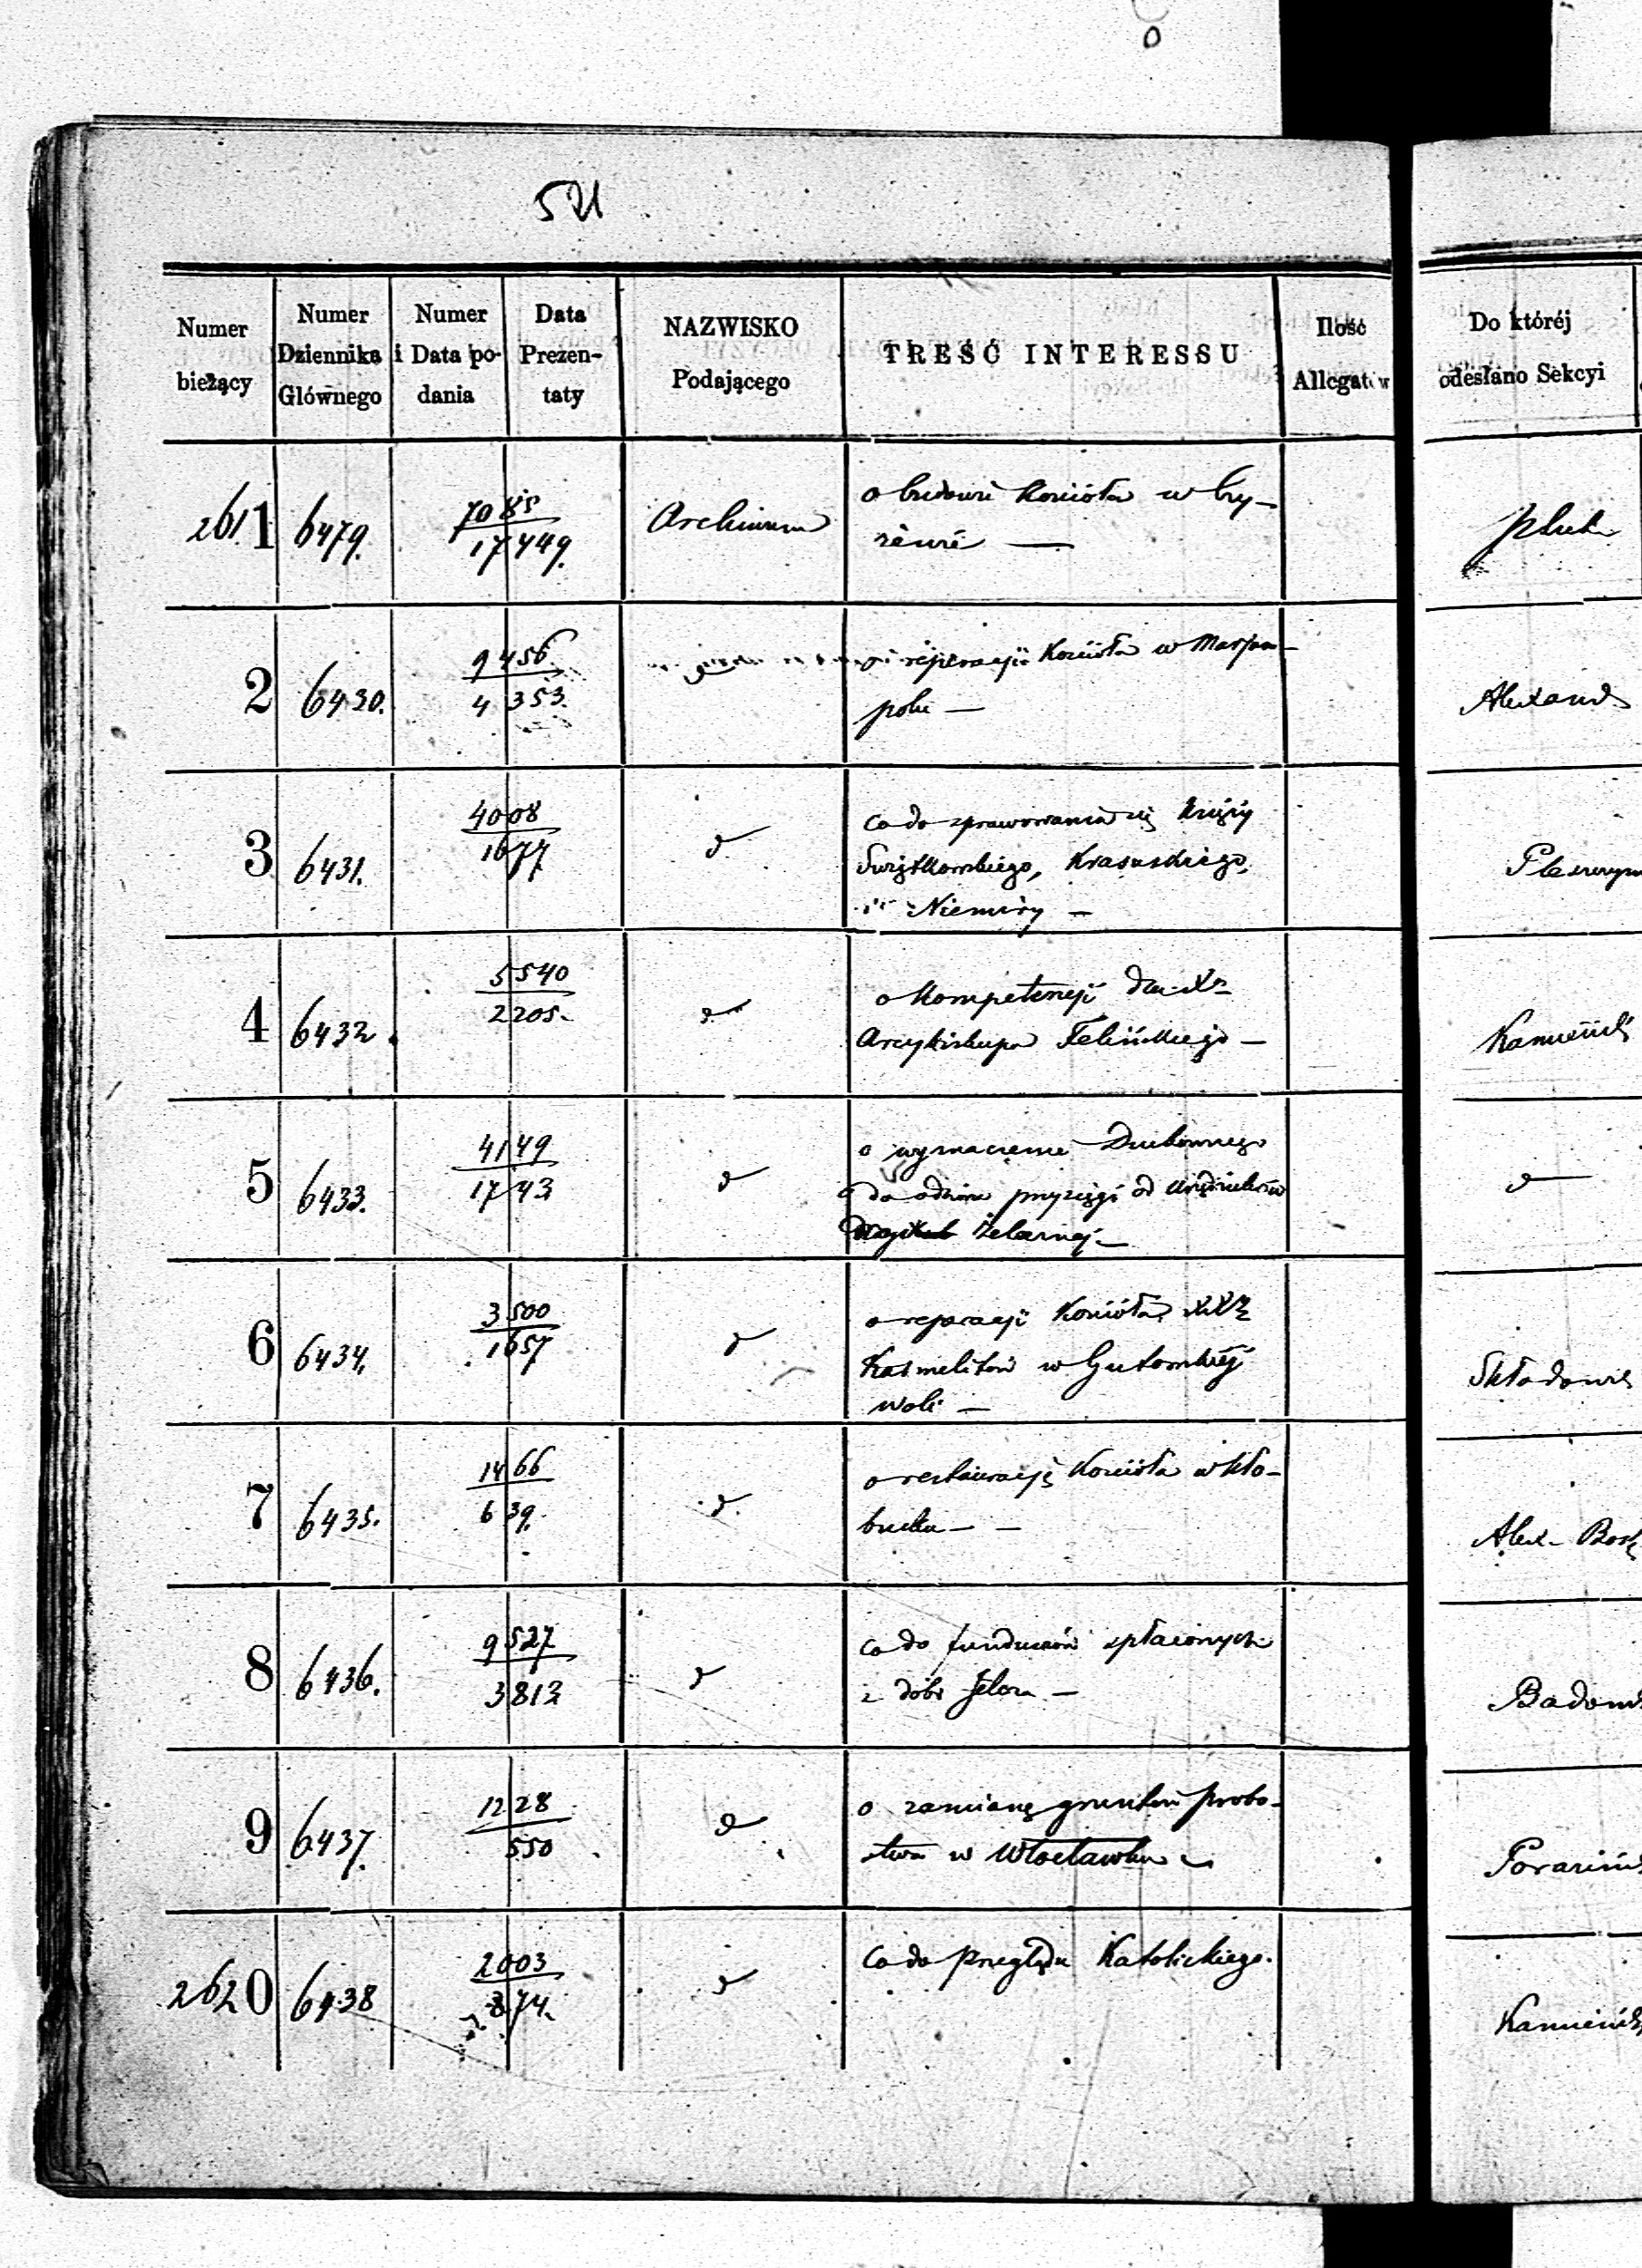 521
Numer bieżący
Numer Dziennika Głównego
Numer i Data podania
Data Prezentaty
NAZWISKO Podającego
TREŚĆ INTERESSU
Ilość Allegatów
Do któréj odesłano Sekcyi
2611 6479. 7085 Archiwum o budowie Kościoła w
17449.
2 6430. 9456 o reperacji Kościoła w Marjam-
4353. polu — Alexand
3 6431. 4008 d co do sprawowania się Księży
1677 Świątkowskiego, Krasuskiego,
i Niemiry —
4 6432. 5540 d o kompetencji dla Xa
2205. Arcybiskupa Felińskiego — Kamieński
5 6433. 4149 d o wyznaczenie Duchownego d
1743 do odbioru przysięgi od Urzędników
Żelaznej —
6 6434. 3500 d o reparacji Kościoła XX
1657 Karmelitów w Gutomskiej
woli — Składowski
7 6435. 1466 d o restauracyę Kościoła w Kło-
639. bucku — — Alex-
8 6436. 9527 d co do funduszów spłaconych
3812 z dóbr —
9 6437. 1228 d o zamianę gruntów probo-
550 stwa w Włocławku
2620 6438 2003 d Co do Przeglądu Katolickiego.
874. Kamieńsk